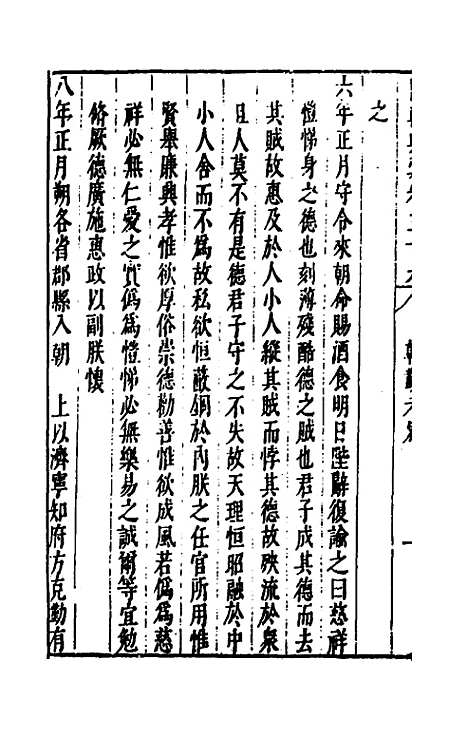 之
六年正月守令來朝命賜酒食明日陛辭復諭之曰慈祥
愷悌身之德也刻薄殘酷德之賊也君子成其德而去
其賊故惠及於人小人縱其賊而悖其德故殃流於衆
且人莫不有是德君子守之不失故天理恒昭融於中
小人舍而不爲故私欲恒蔽錮於內朕之任官所用惟
賢舉廉興孝惟欲厚俗崇德勸善惟欲成風若僞爲慈
祥必無仁愛之實僞爲愷悌必無樂易之誠爾等宜勉
脩厥德廣施惠政以副朕懷
八年正月朔各省郡縣入朝 上以濟寧知府方克勤有